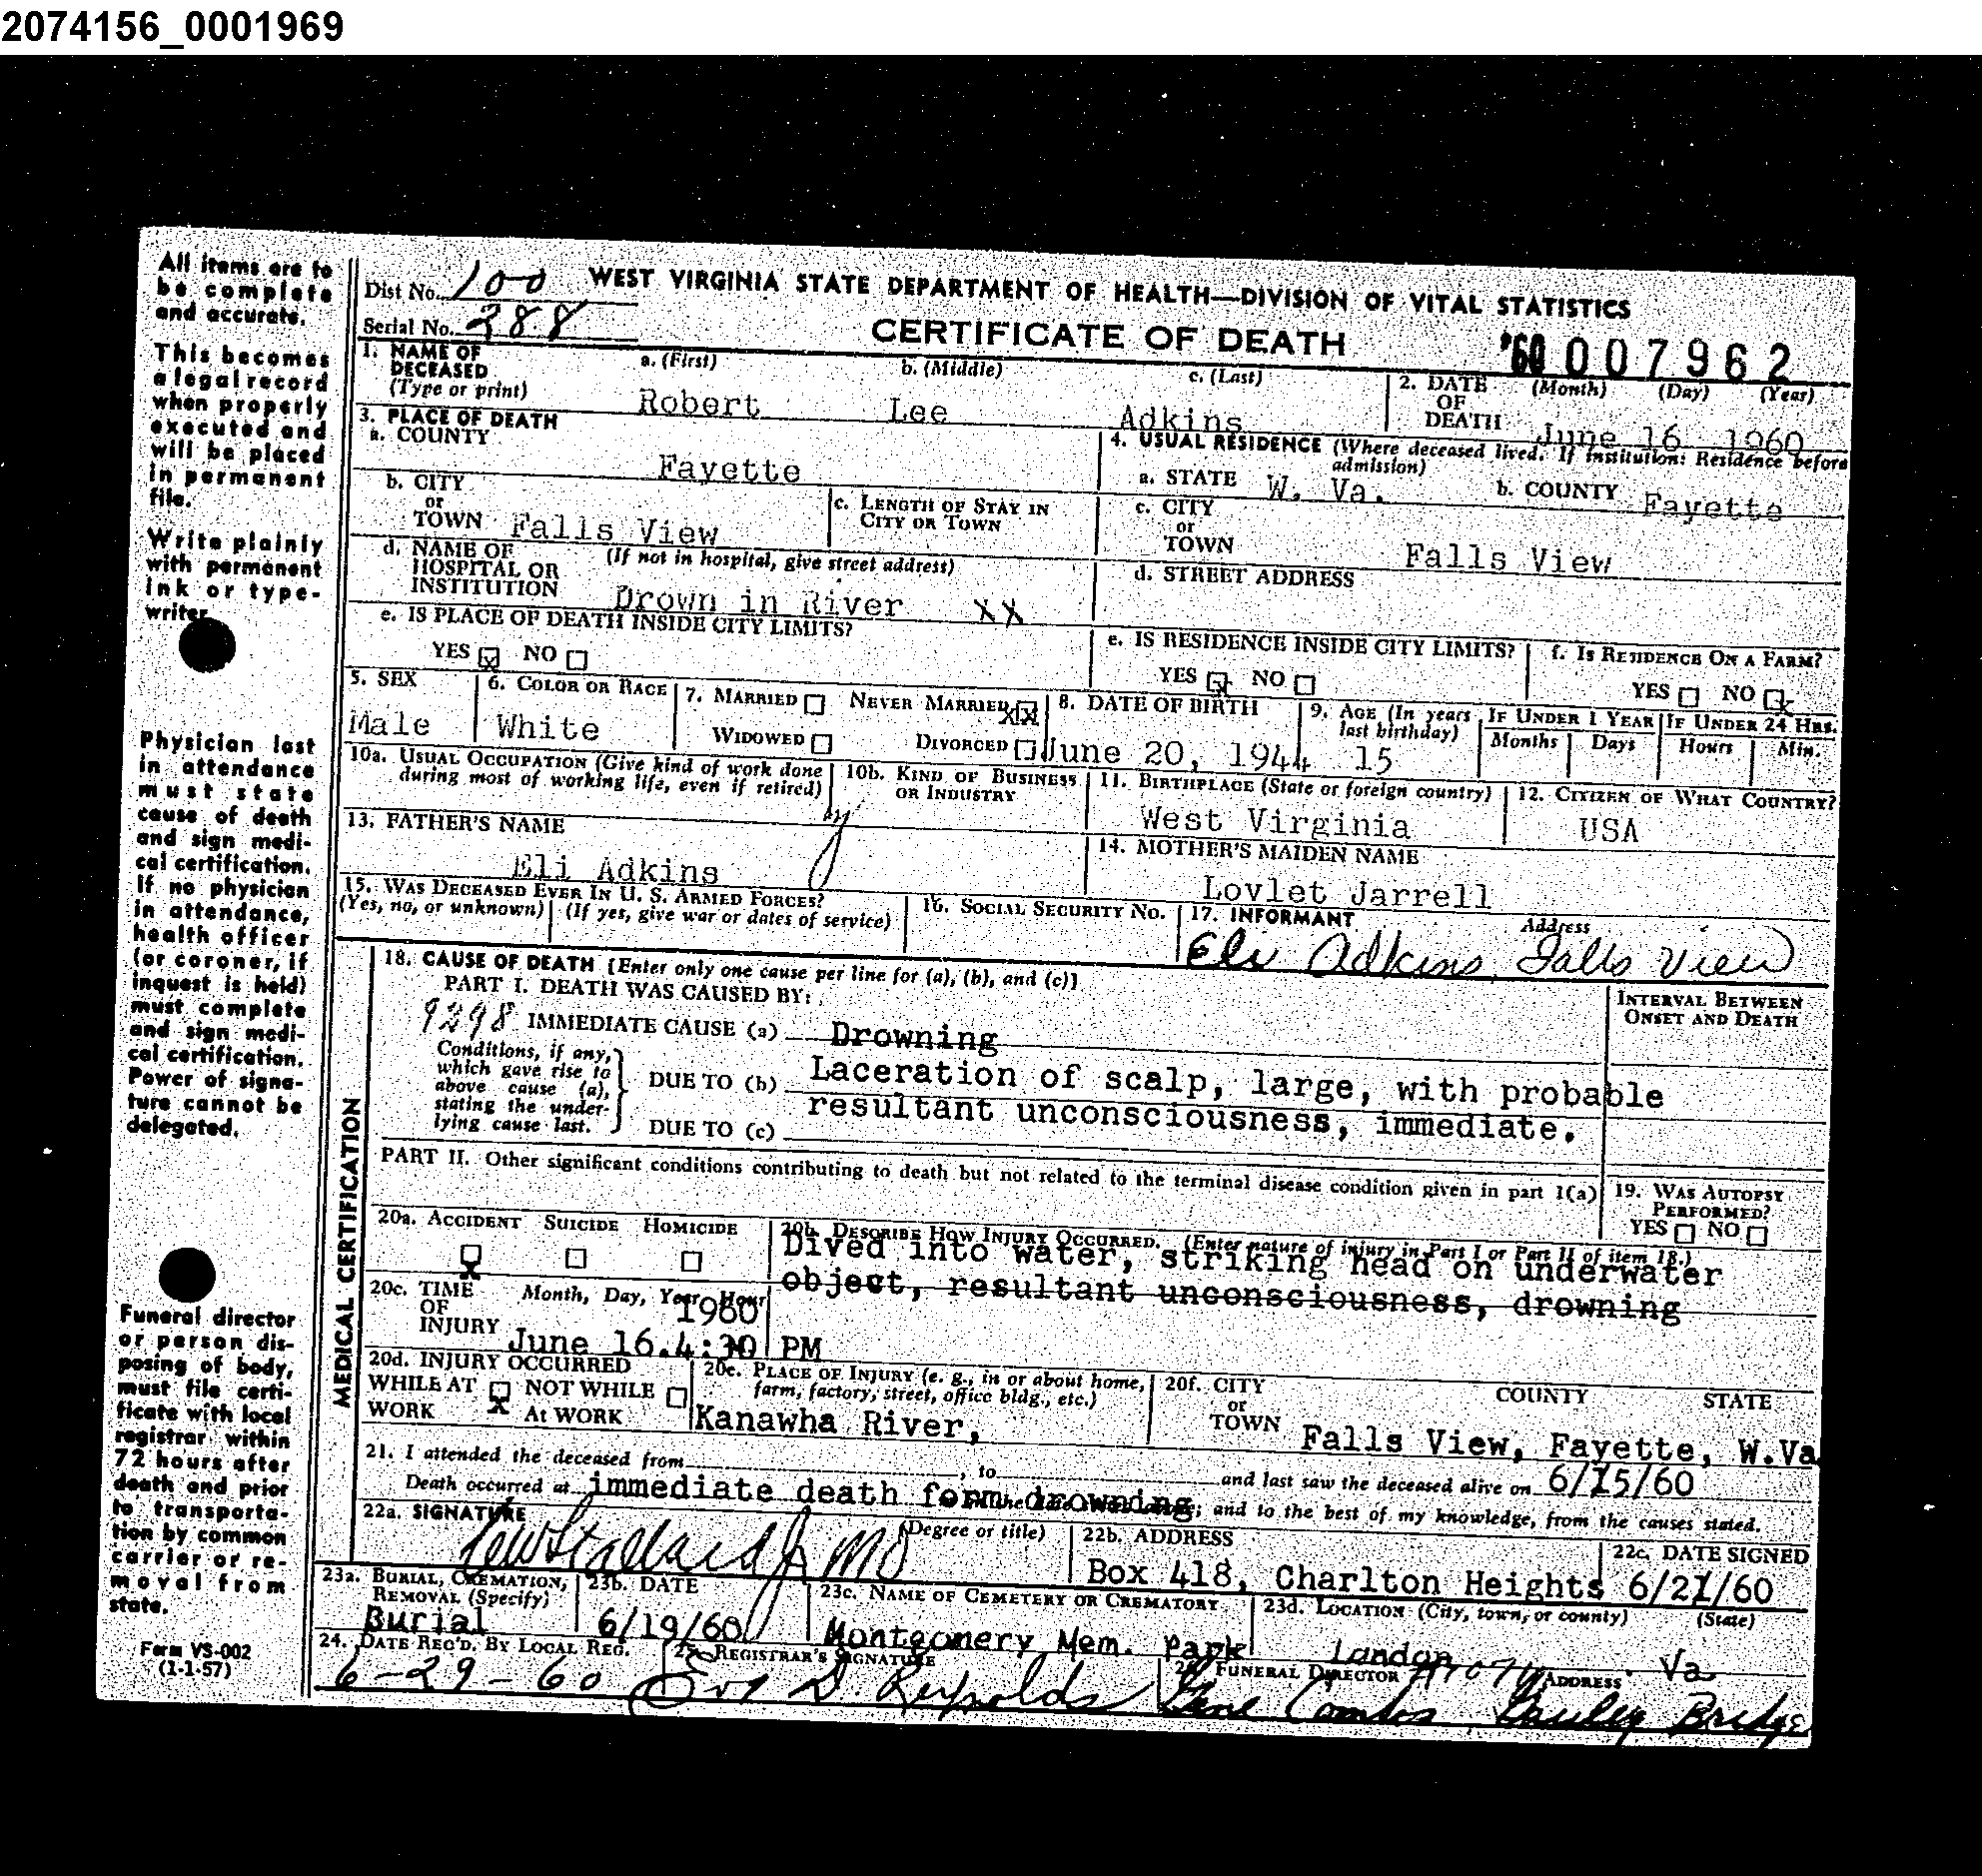 2074156_0001969
All items are to
be complete
and accurate.
This becomes
a legal record
when properly
executed and
will be placed
in permanent
file.
Write plainly
with permanent
ink or type-
writer
Physician last
in attendance
must state
cause of death
and sign medi-
cal certification.
If no physician
in attendance,
health officer
(or coroner, if
inquest is held)
must complete
and sign medi-
cal certification.
Power of signa-
ture cannot be
delegated.
Funeral director
or person dis-
posing of body,
must file certi-
ficate with local
registrar within
72 hours after
death and prior
to transporta-
tion by common
carrier or re-
moval from
state.
Form VS-002
(1-1-57)
Dist No. 100 WEST VIRGINIA STATE DEPARTMENT OF HEALTH—DIVISION OF VITAL STATISTICS
Serial No. 288 CERTIFICATE OF DEATH '60 007962
1. NAME OF DECEASED (Type or print) a. (First) b. (Middle) c. (Last) 2. DATE OF DEATH (Month) (Day) (Year)
Robert Lee Adkins June 16 1960
3. PLACE OF DEATH
a. COUNTY Fayette
4. USUAL RESIDENCE (Where deceased lived. If institution: Residence before admission)
a. STATE W. Va. b. COUNTY Fayette
b. CITY or TOWN Falls View c. LENGTH OF STAY IN CITY OR TOWN
c. CITY or TOWN Falls View
d. NAME OF HOSPITAL OR INSTITUTION (If not in hospital, give street address)
Drown in River XX
d. STREET ADDRESS
e. IS PLACE OF DEATH INSIDE CITY LIMITS?
YES x NO
e. IS RESIDENCE INSIDE CITY LIMITS? f. IS RESIDENCE ON A FARM?
YES x NO YES NO x
5. SEX 6. COLOR OR RACE 7. MARRIED NEVER MARRIED XX 8. DATE OF BIRTH 9. AGE (In years last birthday) IF UNDER 1 YEAR IF UNDER 24 HRS.
Male White WIDOWED DIVORCED June 20, 1944 15 Months Days Hours Min.
10a. USUAL OCCUPATION (Give kind of work done during most of working life, even if retired) 10b. KIND OF BUSINESS OR INDUSTRY 11. BIRTHPLACE (State or foreign country) 12. CITIZEN OF WHAT COUNTRY?
West Virginia USA
13. FATHER'S NAME 14. MOTHER'S MAIDEN NAME
Eli Adkins Lovlet Jarrell
15. WAS DECEASED EVER IN U. S. ARMED FORCES?
(Yes, no, or unknown) (If yes, give war or dates of service) 16. SOCIAL SECURITY No. 17. INFORMANT Address
Eli Adkins, Falls View
MEDICAL CERTIFICATION
18. CAUSE OF DEATH [Enter only one cause per line for (a), (b), and (c)]
PART I. DEATH WAS CAUSED BY: INTERVAL BETWEEN ONSET AND DEATH
9298 IMMEDIATE CAUSE (a) Drowning
Conditions, if any, which gave rise to above cause (a), stating the underlying cause last.
DUE TO (b) Laceration of scalp, large, with probable
resultant unconsciousness, immediate.
DUE TO (c)
PART II. Other significant conditions contributing to death but not related to the terminal disease condition given in part 1(a) 19. WAS AUTOPSY PERFORMED?
YES NO
20a. ACCIDENT SUICIDE HOMICIDE 20b. DESCRIBE HOW INJURY OCCURRED. (Enter nature of injury in Part I or Part II of item 18.)
x Dived into water, striking head on underwater
object, resultant unconsciousness, drowning
20c. TIME OF INJURY Month, Day, Year, Hour
1960
June 16.4:30 PM
20d. INJURY OCCURRED 20e. PLACE OF INJURY (e. g., in or about home, farm, factory, street, office bldg., etc.) 20f. CITY or TOWN COUNTY STATE
WHILE AT WORK x NOT WHILE At WORK Kanawha River, Falls View, Fayette, W.Va
21. I attended the deceased from , to and last saw the deceased alive on 6/15/60
Death occurred at immediate death form drowning; and to the best of my knowledge, from the causes stated.
22a. SIGNATURE (Degree or title) 22b. ADDRESS 22c. DATE SIGNED
Stallard Jr MD Box 418, Charlton Heights 6/21/60
23a. BURIAL, CREMATION, REMOVAL (Specify) 23b. DATE 23c. NAME OF CEMETERY OR CREMATORY 23d. LOCATION (City, town, or county) (State)
Burial 6/19/60 Montgomery Mem. Park London Va
24. DATE REC'D. BY LOCAL REG. 25. REGISTRAR'S SIGNATURE 26. FUNERAL DIRECTOR ADDRESS
6-29-60 D. Reynolds Gene Combs Gauley Bridge